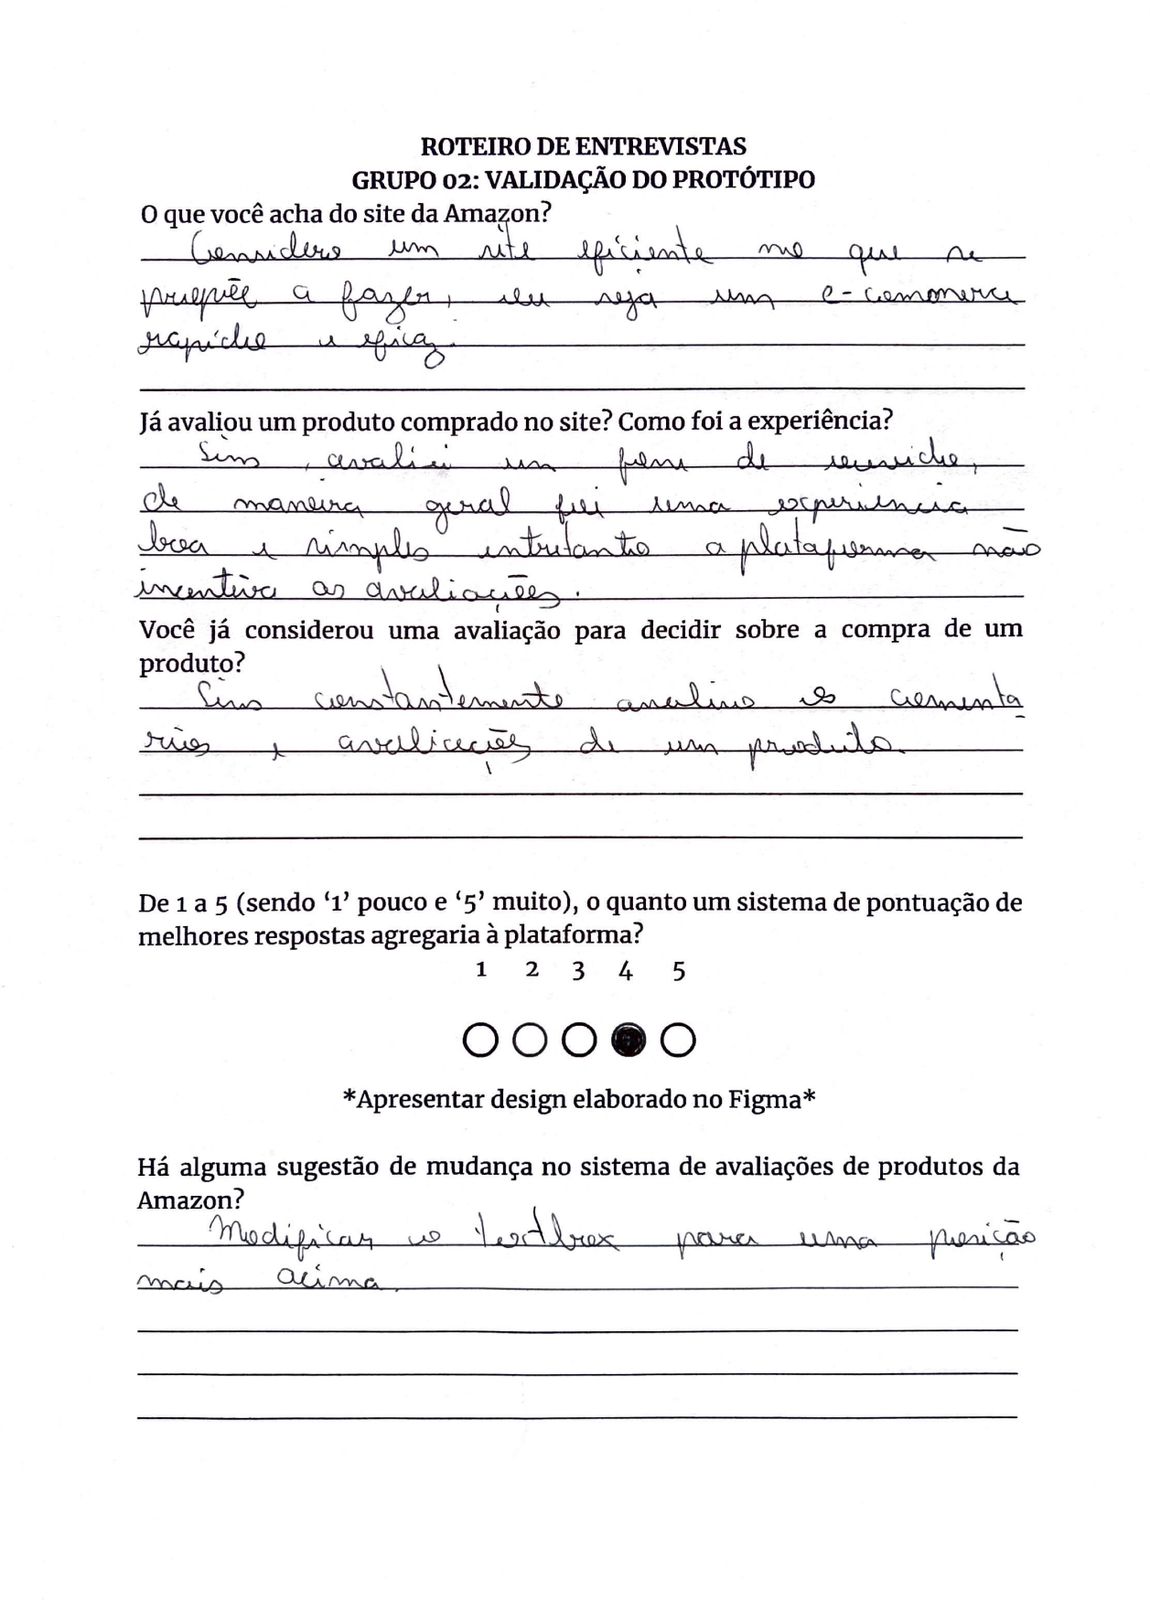 ROTEIRO DE ENTREVISTAS
GRUPO 02: VALIDAÇÃO DO PROTÓTIPO
O que você acha do site da Amazon?
Considero um site eficiente no que se
propõe a fazer, ou seja um e-commerce
rapido e eficaz.
Já avaliou um produto comprado no site? Como foi a experiência?
Sim, avaliei um fone de ouvido,
de maneira geral foi uma experiencia
boa e simples entretanto a plataforma não
incentiva as avaliações.
Você já considerou uma avaliação para decidir sobre a compra de um
produto?
Sim constantemente analiso os comenta
rios e avaliações de um produto.
De 1 a 5 (sendo ‘1’ pouco e ‘5’ muito), o quanto um sistema de pontuação de
melhores respostas agregaria à plataforma?
1 2 3 4 5
*Apresentar design elaborado no Figma*
Há alguma sugestão de mudança no sistema de avaliações de produtos da
Amazon?
Modificar o textbox para uma posição
mais acima.